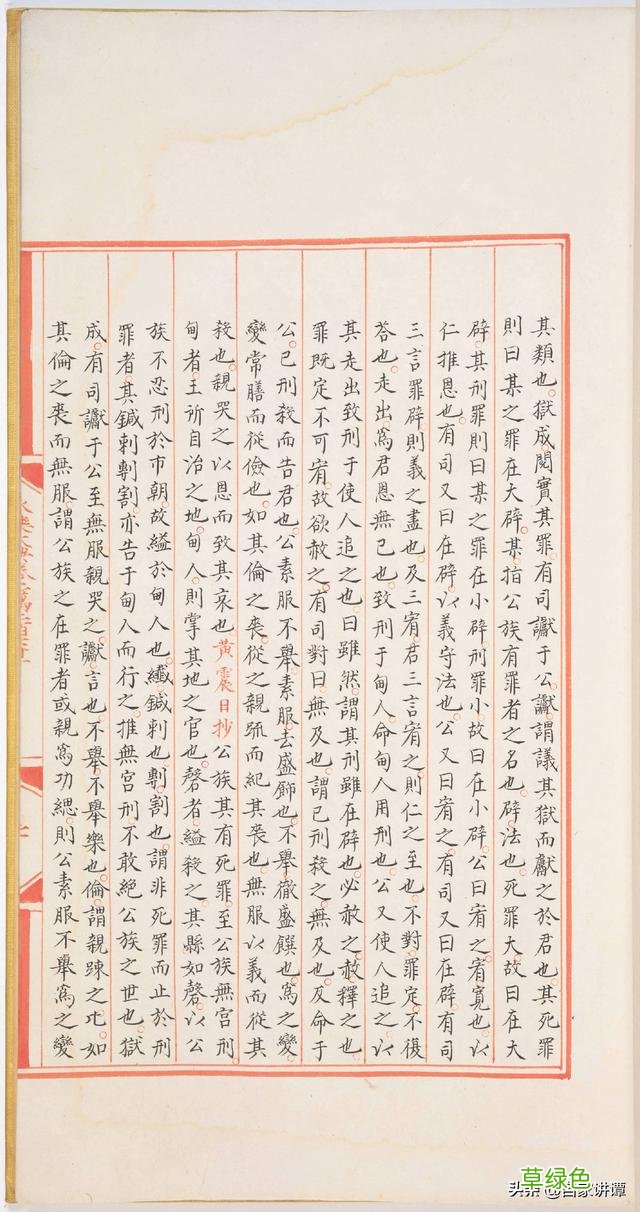 其類也獄成閱實其罪有司讞于公讞謂議其獄而獻之於君也其死罪
則曰某之罪在大辟某指公族有罪者之名也辟法也死罪大故曰在大
辟其刑罪則曰某之罪在小辟刑罪小故曰在小辟公曰宥之宥寬也以
仁推恩也有司又曰在辟以義守法也公又曰宥之有司又曰在辟有司
三言罪辟則義之盡也及三宥君三言宥之則仁之至也不對罪定不復
答也走出爲君恩無已也致刑于甸人命甸人用刑也公又使人追之以
其走出致刑于使人追之也曰雖然謂其刑雖在辟也必赦之赦釋之也
罪既定不可宥故欲赦之有司對曰無及也謂已刑殺之無及也反命于
公已刑殺而告君也公素服不舉素服去盛飾也不舉徹盛饌也爲之變
變常膳而從儉也如其倫之喪從之親疏而紀其喪也無服以義而從其
殺也親哭之以恩而致其哀也黃震日抄公族其有死罪至公族無宮刑
甸者王所自治之地甸人則掌其地之官也磬者縊殺之其縣如磬以公
族不忍刑於市朝故縊於甸人也纖鍼刺也剸割也謂非死罪而止於刑
罪者其鍼刺剸割亦告于甸人而行之推無宮刑不敢絕公族之世也獄
成有司讞于公至無服親哭之讞言也不舉不舉樂也倫謂親踈之比如
其倫之喪而無服謂公族之在罪者或親爲功緦則公素服不舉爲之變
草绿色
头条 @自家讲谭